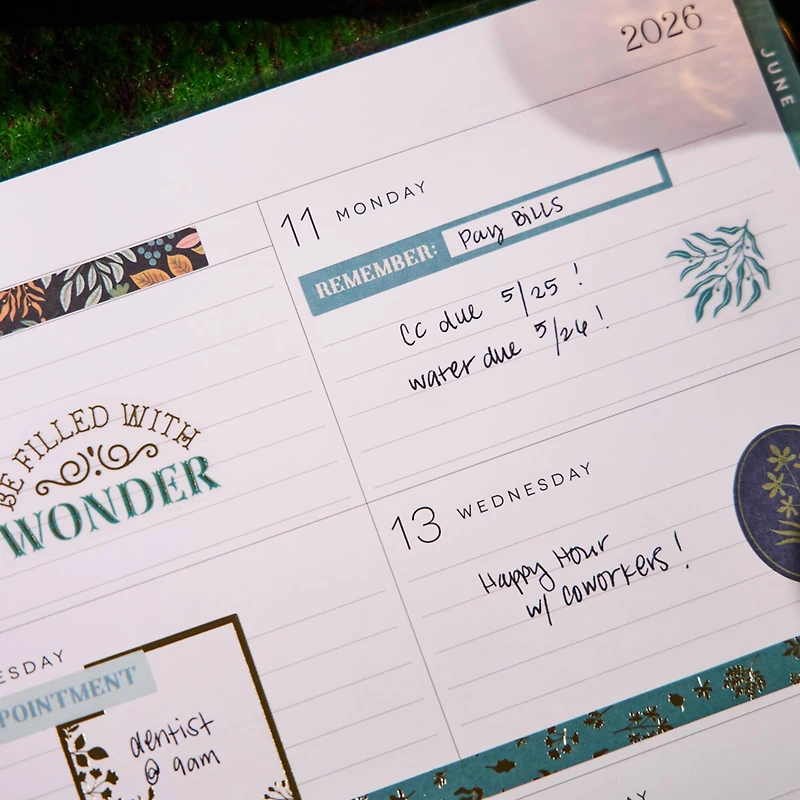 2026
JUNE
11 MONDAY
REMEMBER: Pay Bills
CC due 5/25 !
water due 5/26 !
BE FILLED WITH
WONDER
13 WEDNESDAY
Happy Hour
w/ coworkers !
ESDAY
POINTMENT
dentist
@ 9am